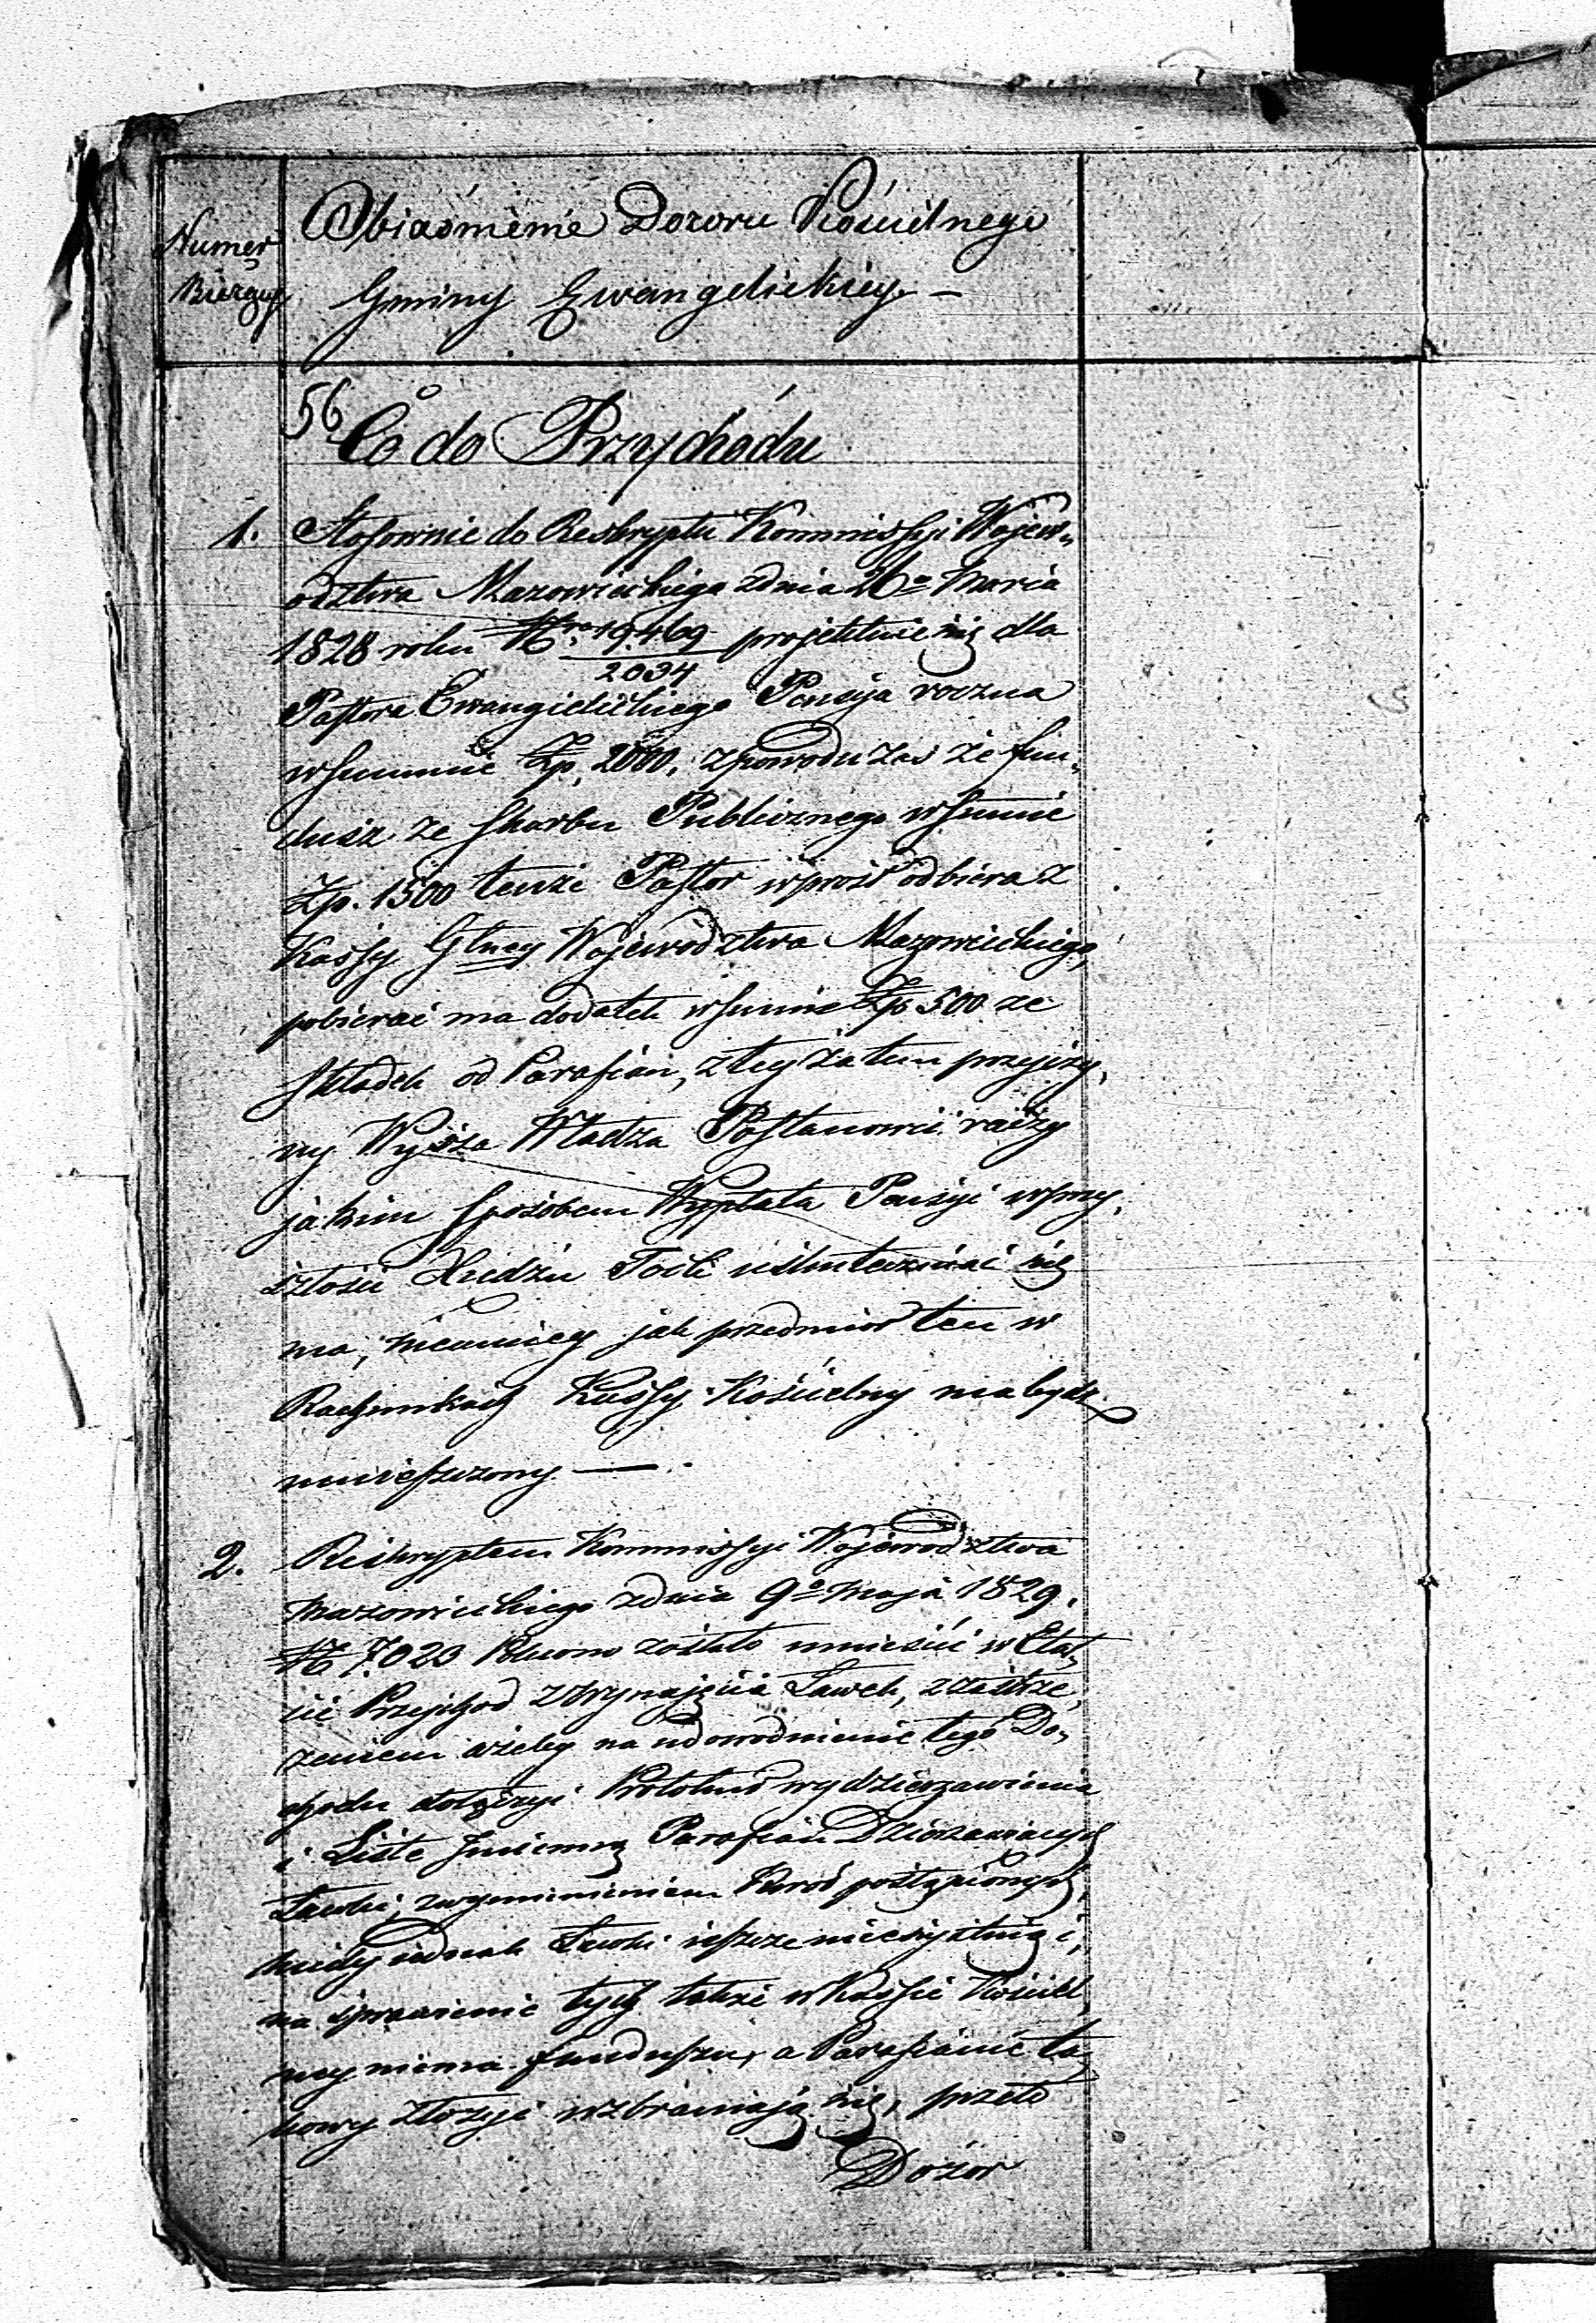 Numer
Bieżący
Obiaśnienie Dozoru Kościelnego
Gminy Ewangelickiey —
56
Co do Przychodu
1. Stosownie do Reskryptu Kommissyi Wojew„
odztwa Mazowieckiego zdnia 26o Marca
1828 roku No 19469/2034 projektuie się dla
Pastora Ewangielickiego Pensyja roczna
w summie Zp. 2000. z powodu zaś że fun„
dusz ze Skarbu Publicznego w Sumie
Zp. 1500 tenże Pastor wprost odbiera z
Kassy Głney Województwa Mazowieckiego,
pobierać ma dodatek w sumie Zp 500 ze
Składek od Parafian, z tey zatem przyczy„
ny Wyższa Władza Postanowić raczy
jakim sposobem Wypłata Pensyi w przy„
szłości Xiędzu uskuteczniać się
ma, niemniey jak przedmiot ten w
Rachunkach Kassy Kościelny ma bydź
umieszczony —
2. Reskryptem Kommissyi Województwa
Mazowieckiego zdnia 9o Maja 1829.
No 7023 Polecono zostało umieścić w Eta„
cie Przychod z Wynajęcia Ławek, z zastrze„
żeniem ażeby na udowodnienie tego Do„
chodu dołączyć Protokuł wydzierzawienia
i Liste Jmienną Parafian Dzierzawiących
Ławki, z wymienieniem Kwot postąpionych,
kiedy iednak Ławki ieszcze nieexystuią i,
na sprawienie tych także w Kassie Kościel„
ney niema funduszu, a Parafianie ta„
kowy złożyć wzbraniają się, przeto
Dozor